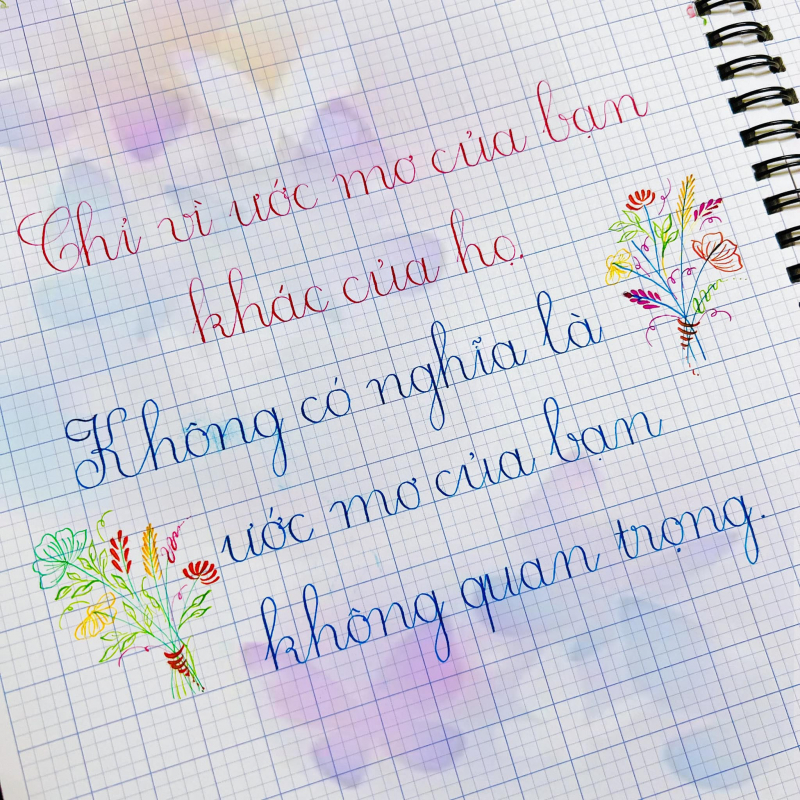 Chỉ vì ước mơ của bạn
khác của họ.
Không có nghĩa là
ước mơ của bạn
không quan trọng.